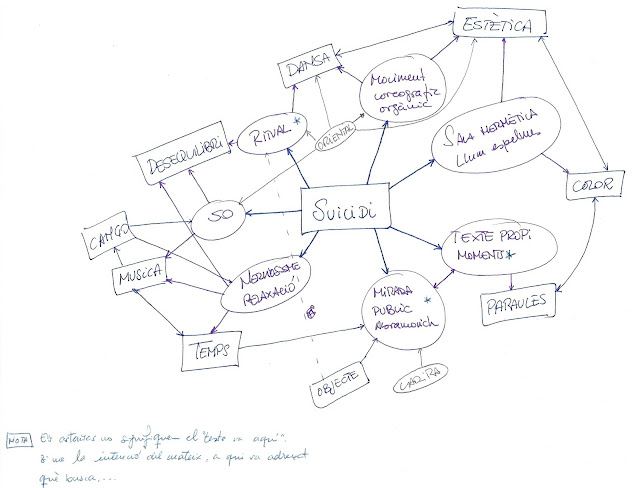 ESTÈTICA
DANSA
Moviment
coreogràfic
orgànic
RITUAL *
ORIENTAL
SALA HERMÈTICA
Llum espelmes
DESEQUILIBRI
SO
SUICIDI
COLOR
CAMGO
TEXTE PROPI
MOMENTS *
MUSICA
NERVIOSISME
RELAXACIÓ
MIRADA
PUBLIC *
Abramovich
PARAULES
TEMPS
OBJECTE
CADIRA
NOTA Els asterisc no signifiquen el "texte va aquí".
Si no la intenció del mateix, a qui va adreçat
què busca,...